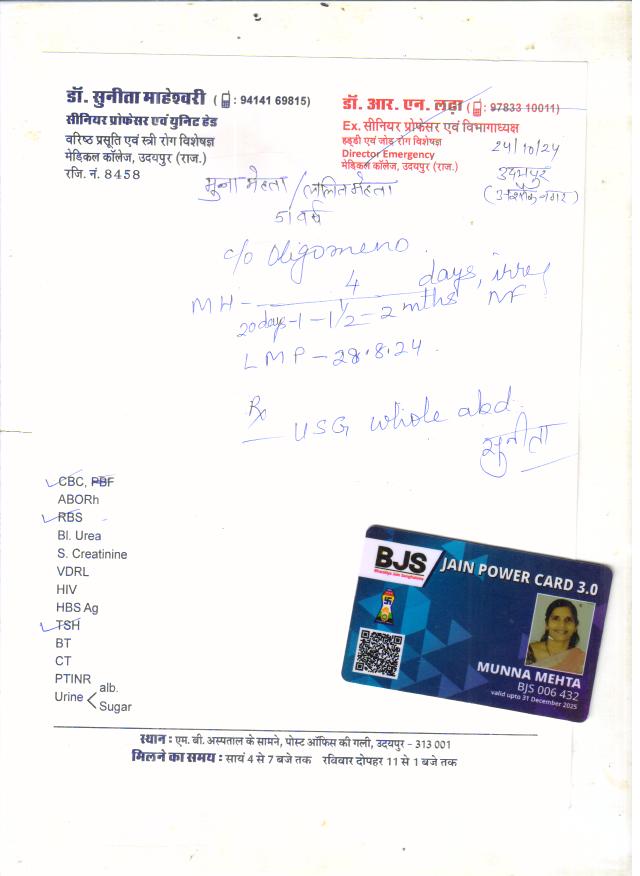 डॉ. सुनीता माहेश्वरी ( : 94141 69815)
सीनियर प्रोफेसर एवं युनिट हेड
वरिष्ठ प्रसूति एवं स्त्री रोग विशेषज्ञ
मेडिकल कॉलेज, उदयपुर (राज.)
रजि. नं. 8458
डॉ. आर. एन. लढ़ा ( : 97833 10011)
Ex. सीनियर प्रोफेसर एवं विभागाध्यक्ष
हड्डी एवं जोड़ रोग विशेषज्ञ
Director Emergency
मेडिकल कॉलेज, उदयपुर (राज.)
24/10/24
उदयपुर
(अशोकनगर)
मुना मेहता / ललित मेहता
51 वर्ष
c/o oligomeno.
MH - 4 days, irreg
20days-1-1½-2 mths NF
LMP - 28.8.24.
Rx
USG whole abd.
सुनीता
CBC, PBF
ABORh
RBS
Bl. Urea
S. Creatinine
VDRL
HIV
HBS Ag
TSH
BT
CT
PTINR
Urine alb.
Sugar
BJS
JAIN POWER CARD 3.0
MUNNA MEHTA
BJS 006 432
valid upto 31 December 2025
स्थान : एम. बी. अस्पताल के सामने, पोस्ट ऑफिस की गली, उदयपुर - 313 001
मिलने का समय : सायं 4 से 7 बजे तक रविवार दोपहर 11 से 1 बजे तक